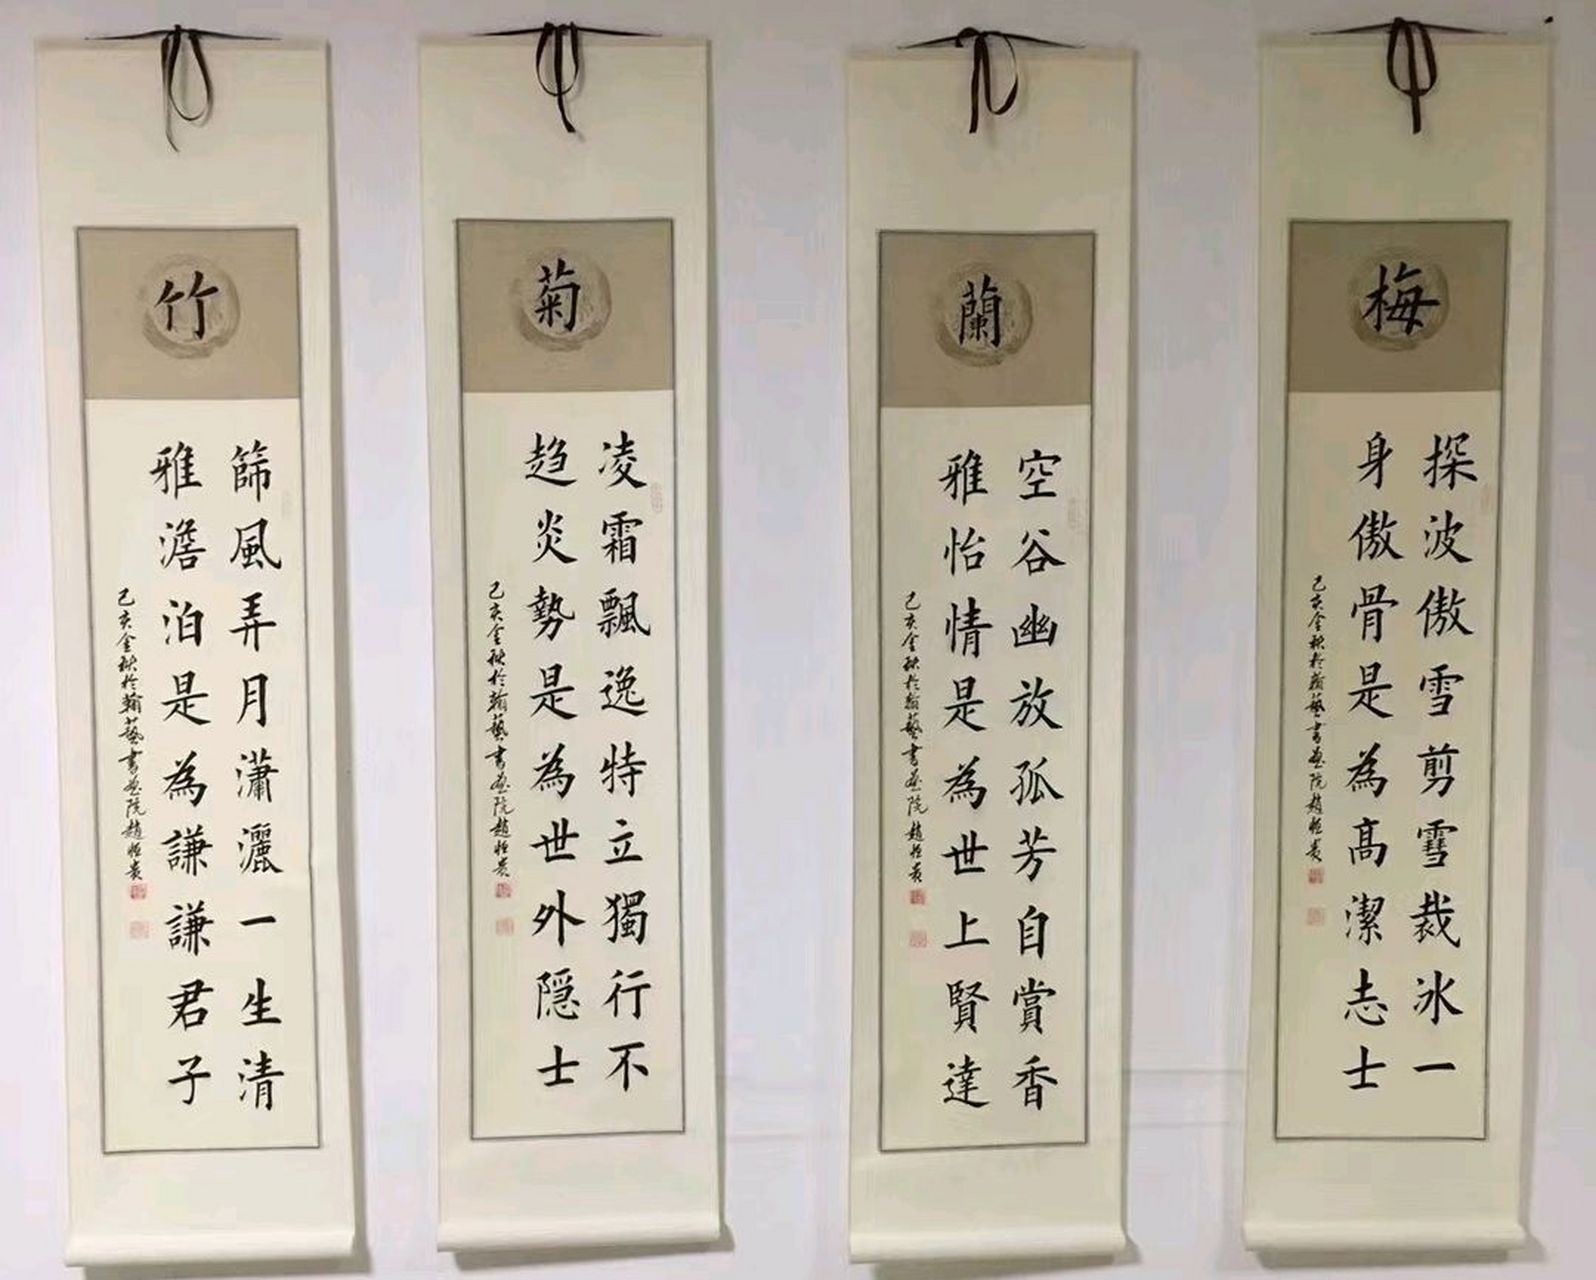 梅
探波傲雪剪雪裁冰一
身傲骨是為高潔志士
己亥金秋於翰藝書画院趙恒貴
蘭
空谷幽放孤芳自賞香
雅怡情是為世上賢達
己亥金秋於翰藝書画院趙恒貴
菊
凌霜飄逸特立獨行不
趋炎勢是為世外隱士
己亥金秋於翰藝書画院趙恒貴
竹
篩風弄月瀟灑一生清
雅澹泊是為謙謙君子
己亥金秋於翰藝書画院趙恒貴